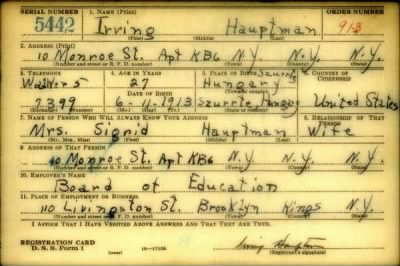 SERIAL NUMBER 1. NAME (Print) ORDER NUMBER
5442 Irving Hauptman 913
(First) (Middle) (Last)
2. ADDRESS (Print)
10 Monroe St. Apt KB6 N.Y. N.Y. N.Y.
(Number and street or R. F. D. number) (Town) (County) (State)
3. TELEPHONE 4. AGE IN YEARS 5. PLACE OF BIRTH 6. COUNTRY OF CITIZENSHIP
Walkers 27
DATE OF BIRTH Hungary
7399 6-11-1913 Szurrte Hungary United States
(Mo.) (Day) (Yr.) (State or country)
7. NAME OF PERSON WHO WILL ALWAYS KNOW YOUR ADDRESS 8. RELATIONSHIP OF THAT PERSON
Mrs. Sigrid Hauptman Wife
(Mr., Mrs., Miss) (First) (Middle) (Last)
9. ADDRESS OF THAT PERSON
10 Monroe St. Apt KB6 N.Y. N.Y. N.Y.
(Number and street or R. F. D. number) (Town) (County) (State)
10. EMPLOYER'S NAME
Board of Education
11. PLACE OF EMPLOYMENT OR BUSINESS
110 Livingston St. Brooklyn Kings N.Y.
(Number and street or R. F. D. number) (Town) (County) (State)
I AFFIRM THAT I HAVE VERIFIED ABOVE ANSWERS AND THAT THEY ARE TRUE.
REGISTRATION CARD
D. S. S. Form 1 (over) Irving Hauptman
(Registrant's signature)